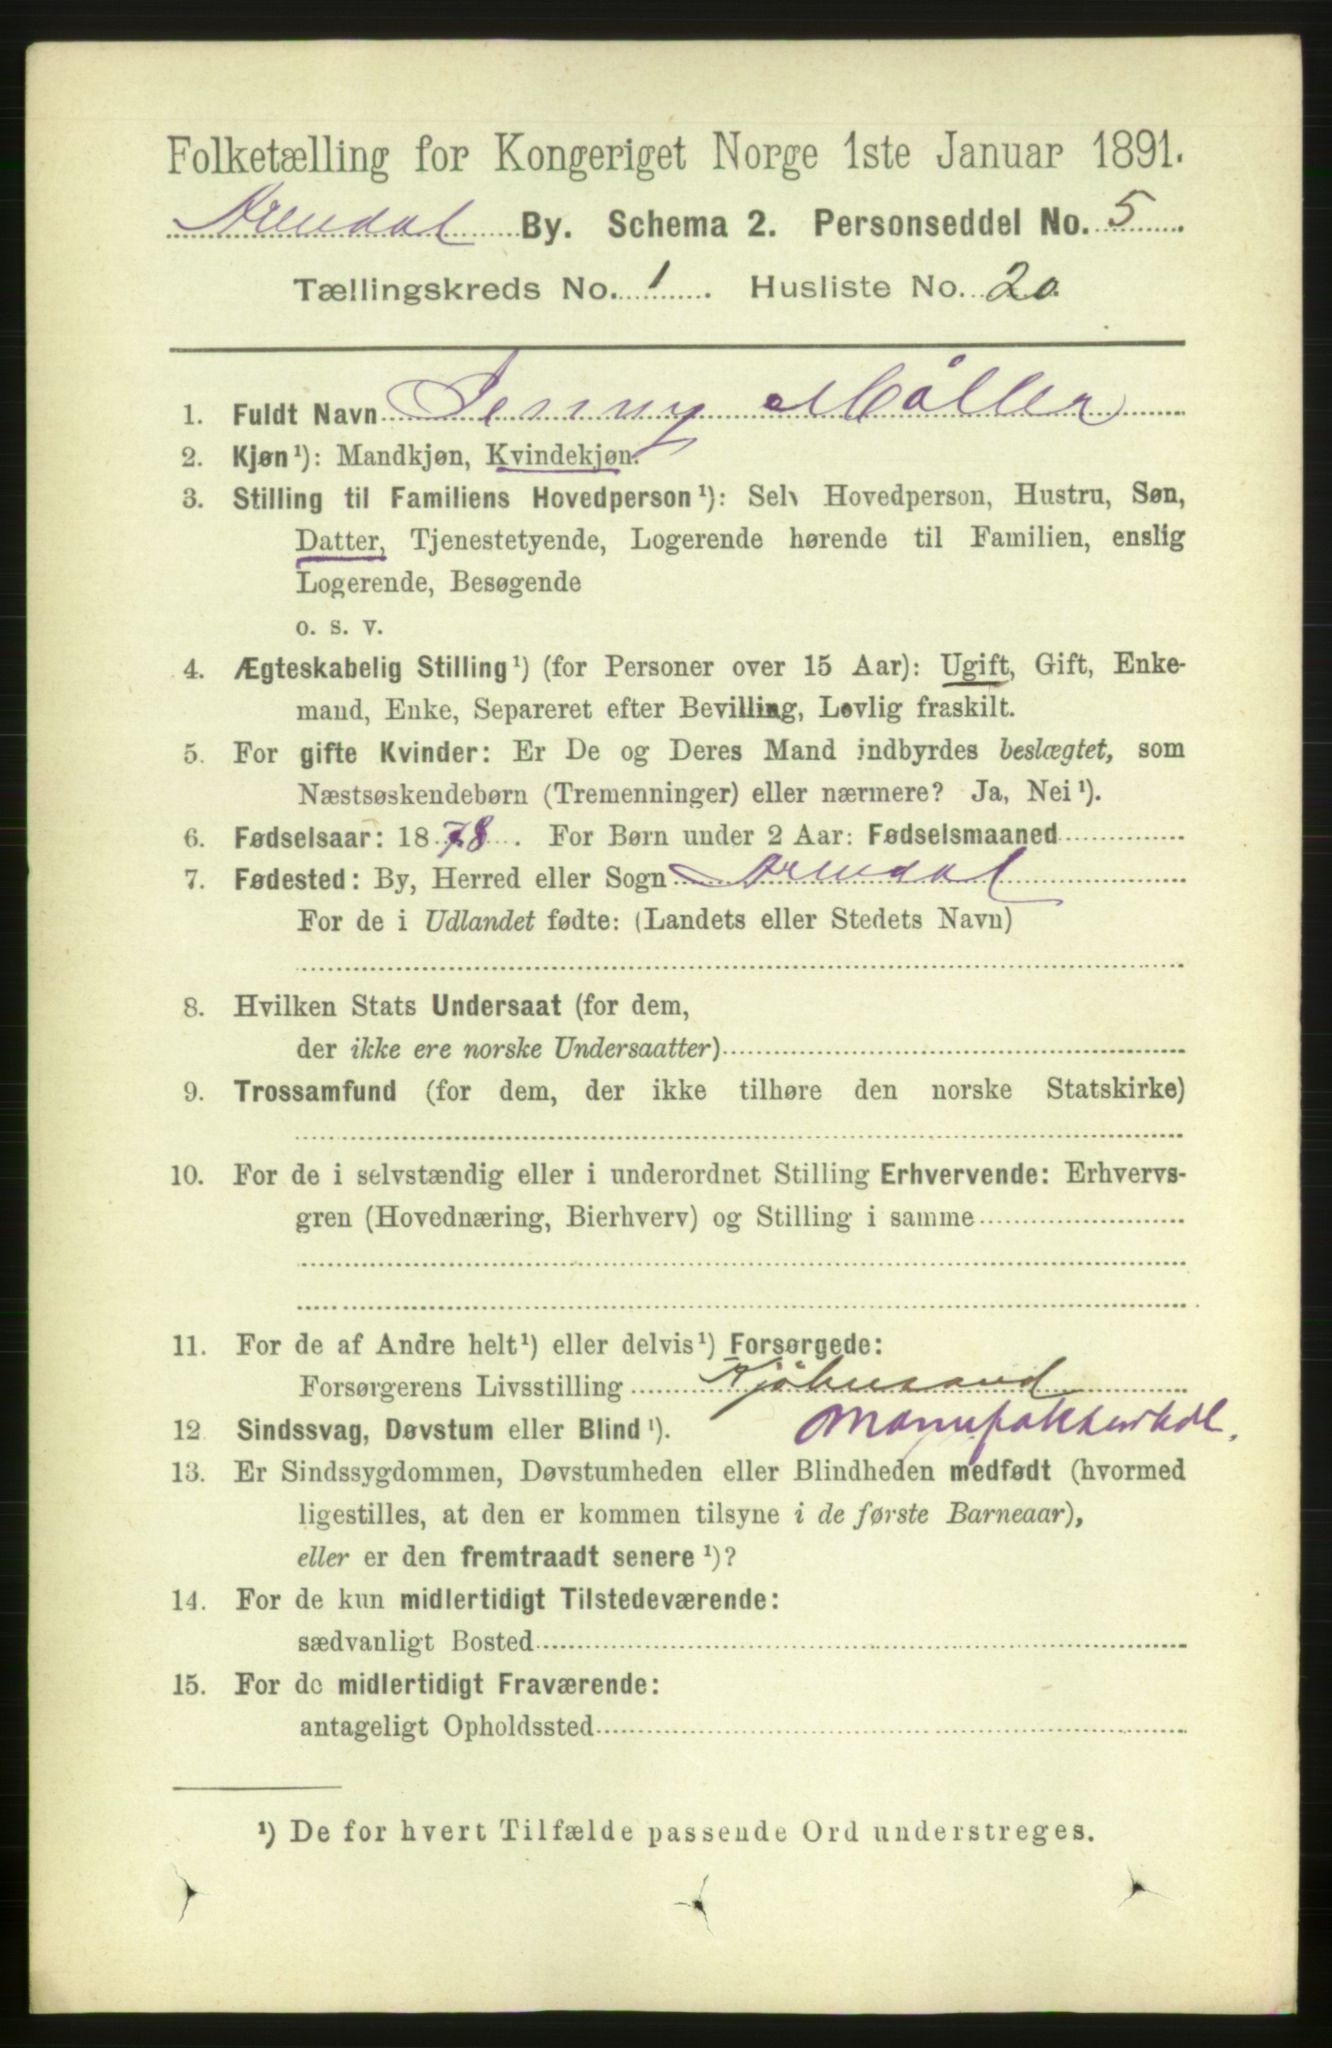 Folketælling for Kongeriget Norge 1ste Januar 1891.
Arendal By. Schema 2. Personseddel No. 5
Tællingskreds No. 1. Husliste No. 20.
1. Fuldt Navn Jenny Möller
2. Kjøn¹): Mandkjøn, Kvindekjøn.
3. Stilling til Familiens Hovedperson¹): Selv Hovedperson, Hustru, Søn,
Datter, Tjenestetyende, Logerende hørende til Familien, enslig
Logerende, Besøgende
o. s. v.
4. Ægteskabelig Stilling¹) (for Personer over 15 Aar): Ugift, Gift, Enke-
mand, Enke, Separeret efter Bevilling, Lovlig fraskilt.
5. For gifte Kvinder: Er De og Deres Mand indbyrdes beslægtet, som
Næstsøskendebørn (Tremenninger) eller nærmere? Ja, Nei¹).
6. Fødselsaar: 1878. For Børn under 2 Aar: Fødselsmaaned
7. Fødested: By, Herred eller Sogn Arendal
For de i Udlandet fødte: (Landets eller Stedets Navn)
8. Hvilken Stats Undersaat (for dem,
der ikke ere norske Undersaatter)
9. Trossamfund (for dem, der ikke tilhøre den norske Statskirke)
10. For de i selvstændig eller i underordnet Stilling Erhvervende: Erhvervs-
gren (Hovednæring, Bierhverv) og Stilling i samme
11. For de af Andre helt¹) eller delvis¹) Forsørgede:
Forsørgerens Livsstilling Kjöbmand
12 Sindssvag, Døvstum eller Blind¹). Manufakturhdl.
13. Er Sindssygdommen, Døvstumheden eller Blindheden medfødt (hvormed
ligestilles, at den er kommen tilsyne i de første Barneaar),
eller er den fremtraadt senere¹)?
14. For de kun midlertidigt Tilstedeværende:
sædvanligt Bosted
15. For de midlertidigt Fraværende:
antageligt Opholdssted
¹) De for hvert Tilfælde passende Ord understreges.